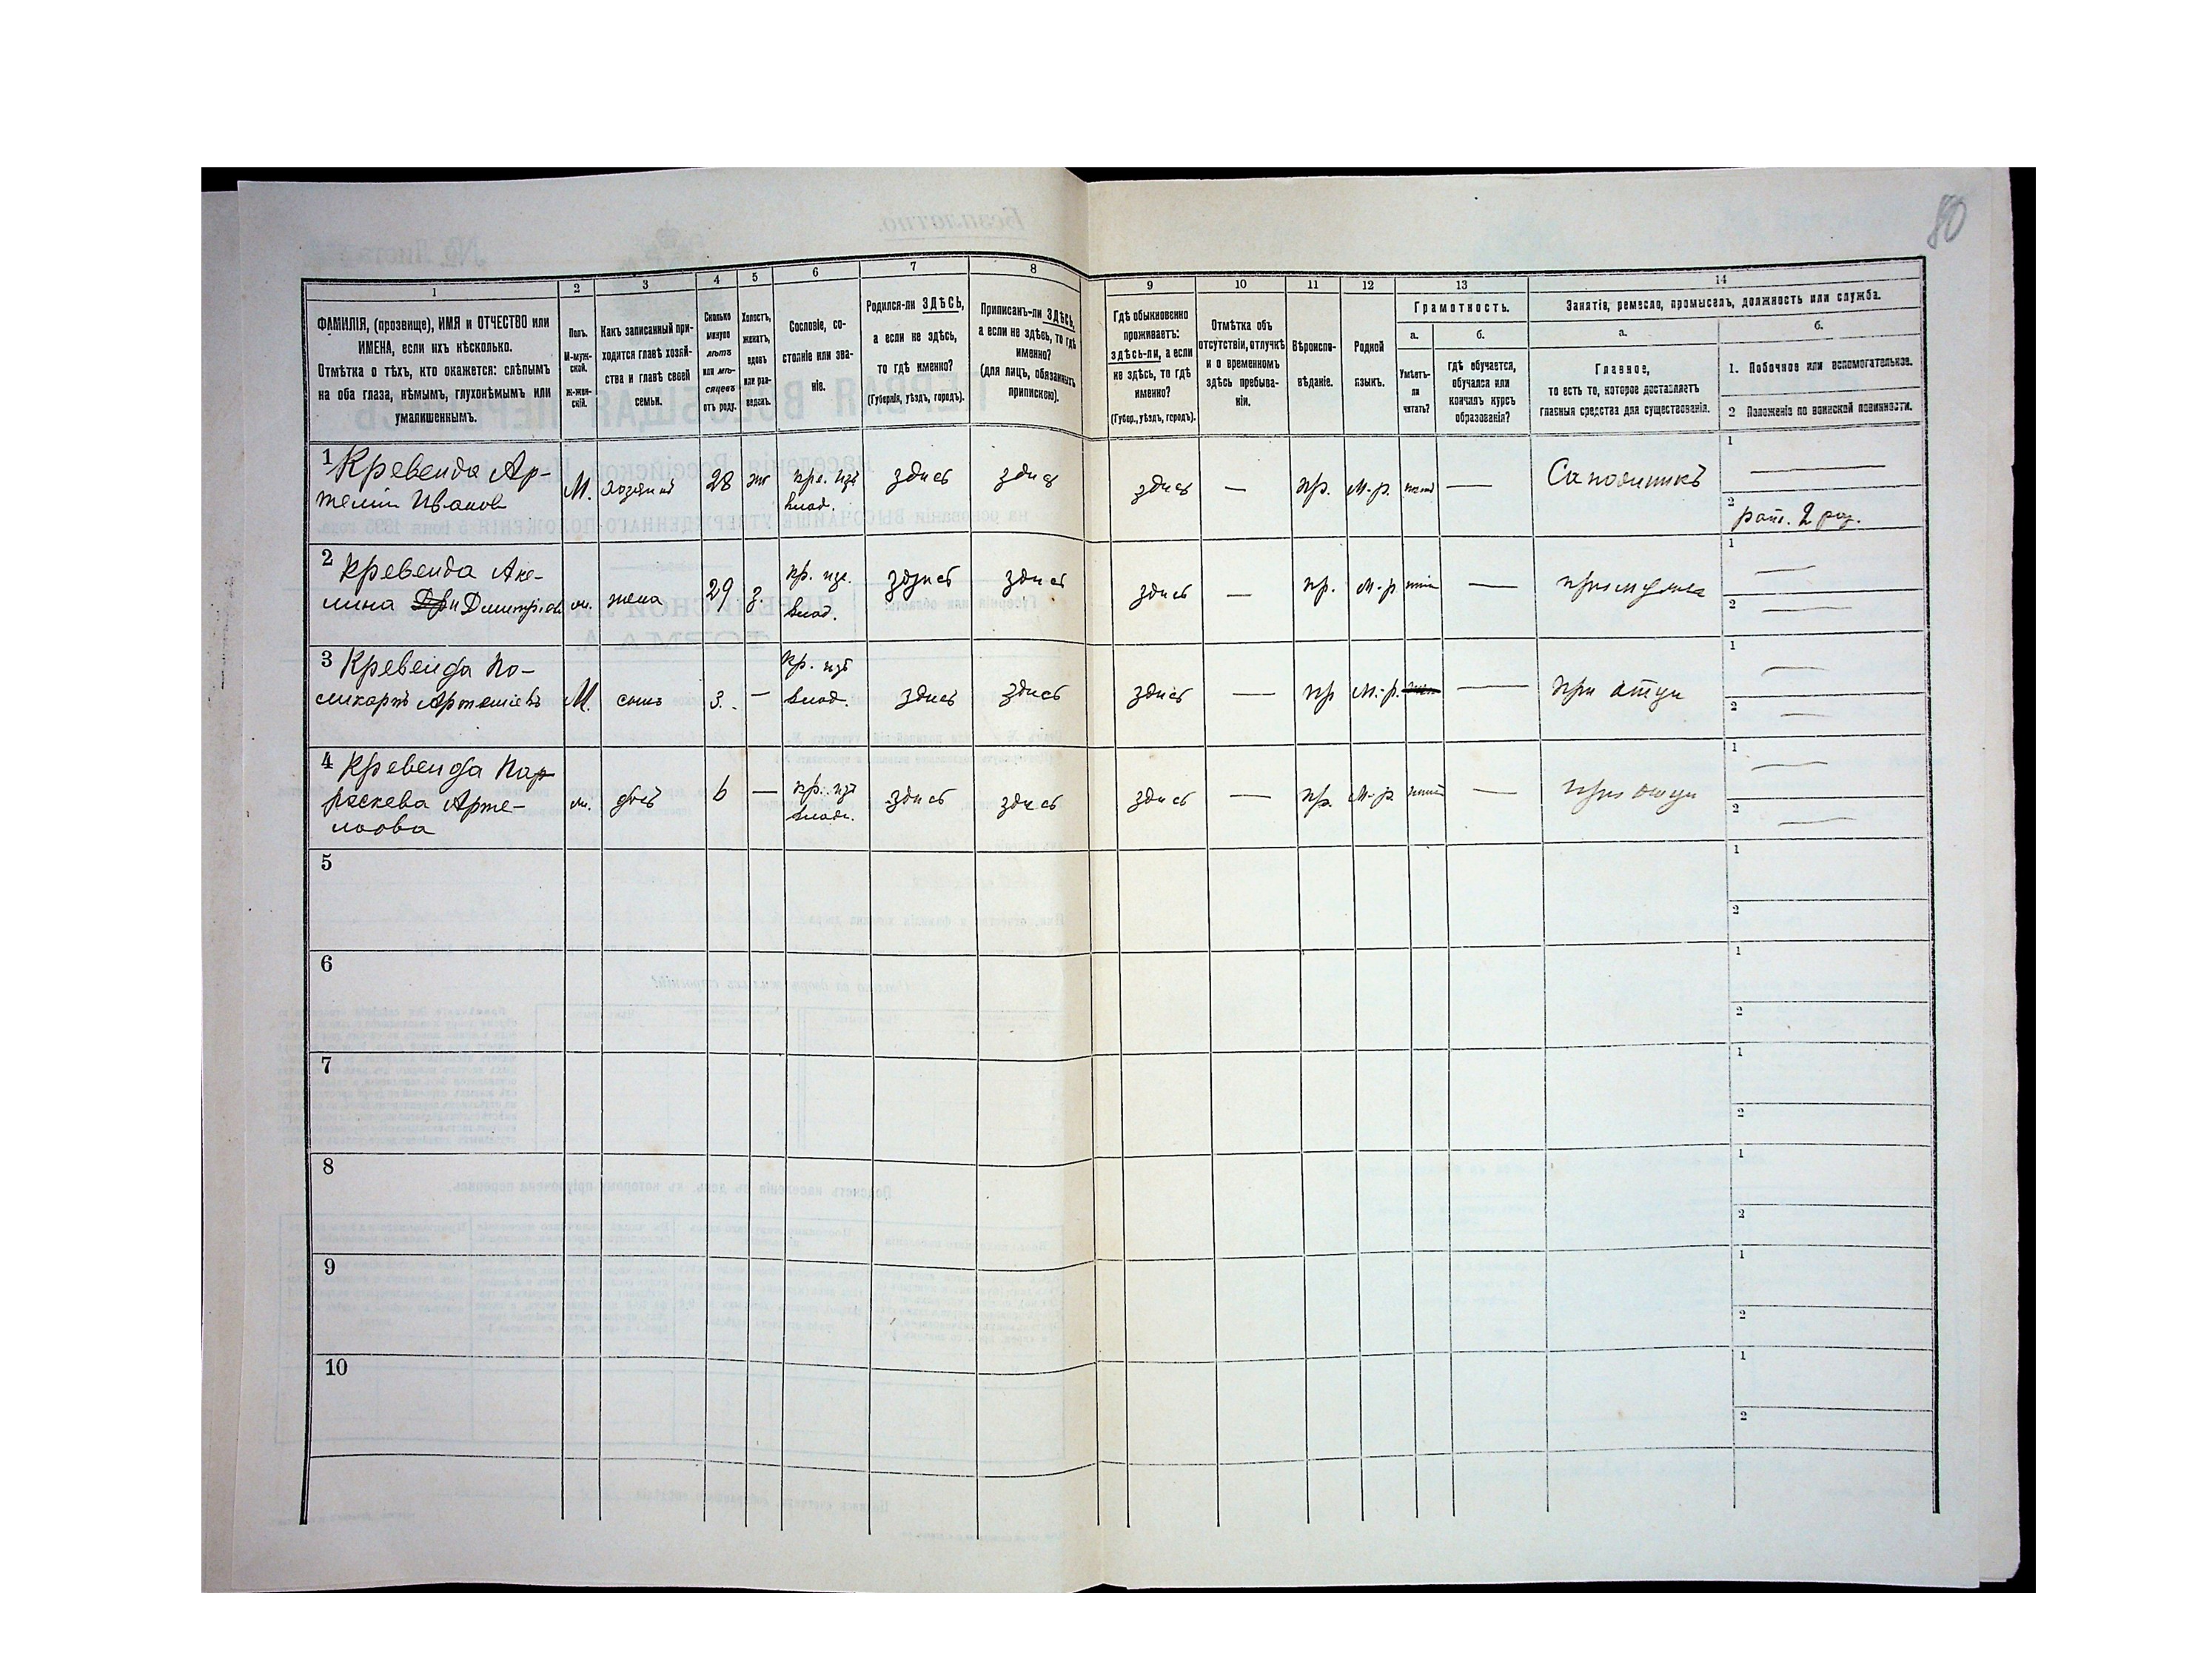 80
1 2 3 4 5 6 7 8 9 10 11 12 13 14
ФАМИЛІЯ, (прозвище), ИМЯ и ОТЧЕСТВО или
ИМЕНА, если ихъ нѣсколько.
Отмѣтка о тѣхъ, кто окажется: слѣпымъ
на оба глаза, нѣмымъ, глухонѣмымъ или
умалишеннымъ.
Полъ.
М-муж-
ской.
Ж-жен-
скій.
Какъ записанный при-
ходится главѣ хозяй-
ства и главѣ своей
семьи.
Сколько
минуло
лѣтъ
или мѣ-
сяцевъ
отъ роду.
Холостъ,
женатъ,
вдовъ
или раз-
веденъ.
Сословіе, со-
стояніе или зва-
ніе.
Родился-ли ЗДѢСЬ,
а если не здѣсь,
то гдѣ именно?
(Губернія, уѣздъ, городъ).
Приписанъ-ли ЗДѢСЬ,
а если не здѣсь, то гдѣ
именно?
(для лицъ, обязанныхъ
припискою).
Гдѣ обыкновенно
проживаетъ:
здѣсь-ли, а если
не здѣсь, то гдѣ
именно?
(Губер., уѣздъ, городъ).
Отмѣтка объ
отсутствіи, отлучкѣ
и о временномъ
здѣсь пребыва-
ніи.
Вѣроиспо-
вѣданіе.
Родной
языкъ.
Грамотность.
а. б.
Умѣетъ-
ли
читать?
гдѣ обучается,
обучался или
кончилъ курсъ
образованія?
Занятія, ремесло, промыселъ, должность или служба.
а. б.
Главное,
то есть то, которое доставляетъ
главныя средства для существованія.
1. Побочное или вспомогательное.
2 Положеніе по воинской повинности.
1 Кревенда Ар-
темій Иванов М. хозяинъ 28 здись здись здись — пр. М-р. — Сапожникъ
1 —
2 рат. 2 раз.
2 Кревенда Аке-
лина Дмитріев жена 29 з. кр. из. влад. здись здись здись — пр. М-р —
1 —
2 —
3 Кревенда По-
ликарпъ Артеміевъ М. сынъ 3. — кр. изъ влад. здись здись здись — пр М-р. — при отцу
1 —
2 —
4 Кревенда Пар-
аскева Арте-
мова дочь 6 — кр. изъ влад. здись здись здись — пр. М-р. — при отцу
1 —
2 —
5 1 2
6 1 2
7 1 2
8 1 2
9 1 2
10 1 2